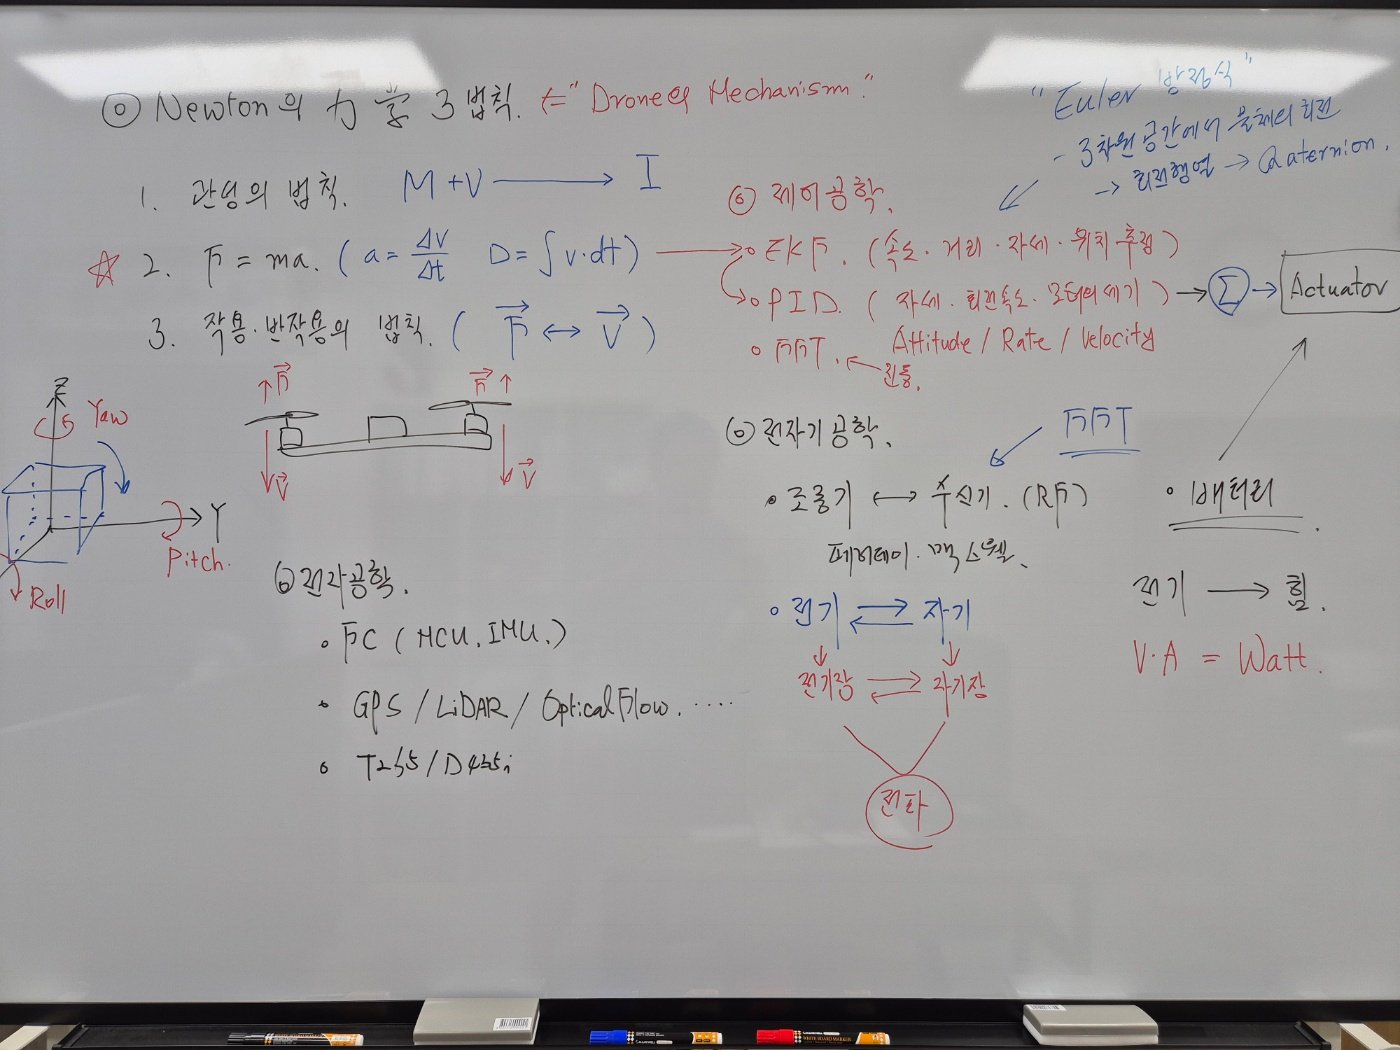 ◎ Newton의 力学 3법칙. ⇐ "Drone의 Mechanism."
1. 관성의 법칙. M+V → I
☆ 2. F = ma. ( a = ΔV/Δt D = ∫v·dt )
3. 작용·반작용의 법칙. ( F ↔ V )
"Euler 방정식"
- 3차원 공간에서 물체의 회전
→ 회전행열 → Quaternion.
◎ 제어공학.
EKF. (속도·거리·자세·위치 추정)
PID. (자세·회전속도·모터의 세기) → Σ → Actuator
Attitude / Rate / Velocity
FFT. ← 진동.
Z
Yaw
Y
Pitch.
Roll
F
F
V
V
◎ 전자공학.
FC (MCU. IMU.)
GPS / LiDAR / OpticalFlow. ....
T265 / D435i
◎ 전자기공학.
FFT
조종기 ↔ 수신기. (RF)
페러데이·맥스웰.
전기 ⇄ 자기
전기장 ⇄ 자기장
전파
배터리
전기 → 힘.
V·A = Watt.